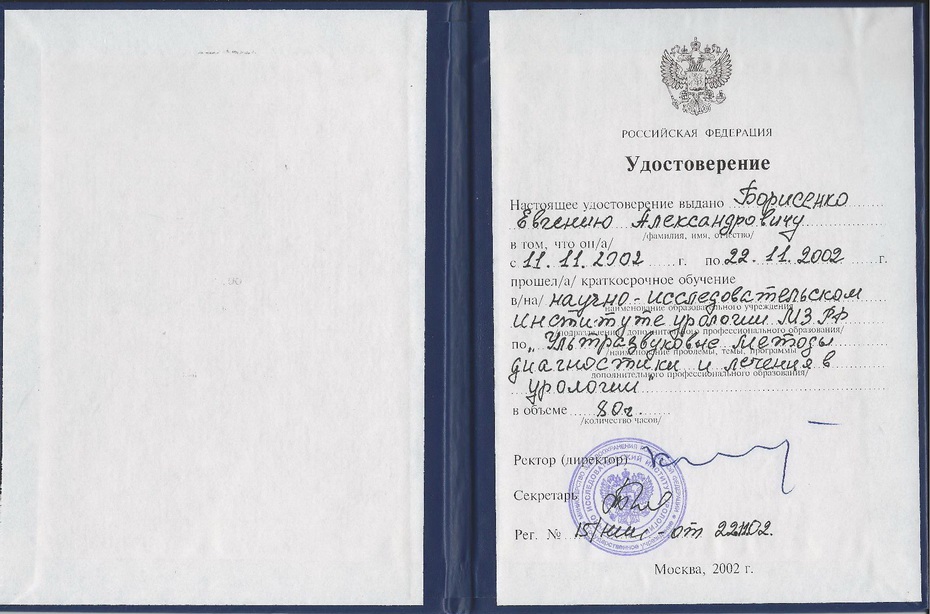 РОССИЙСКАЯ ФЕДЕРАЦИЯ
Удостоверение
Настоящее удостоверение выдано Борисенко
Евгению Александровичу
/фамилия, имя, отчество/
в том, что он/а/
с 11.11.2002 г. по 22.11.2002 г.
прошел/а/ краткосрочное обучение
в/на/ научно-исследовательском
наименование образовательного учреждения
институте урологии МЗ РФ
/подразделения дополнительного профессионального образования/
по „Ультразвуковые методы
/наименование проблемы, темы, программы
диагностики и лечения в
дополнительного профессионального образования/
урологии"
в объеме 80ч.
/количество часов/
Ректор (директор)
Секретарь
Рег. № 15/ - от
Москва, 2002 г.